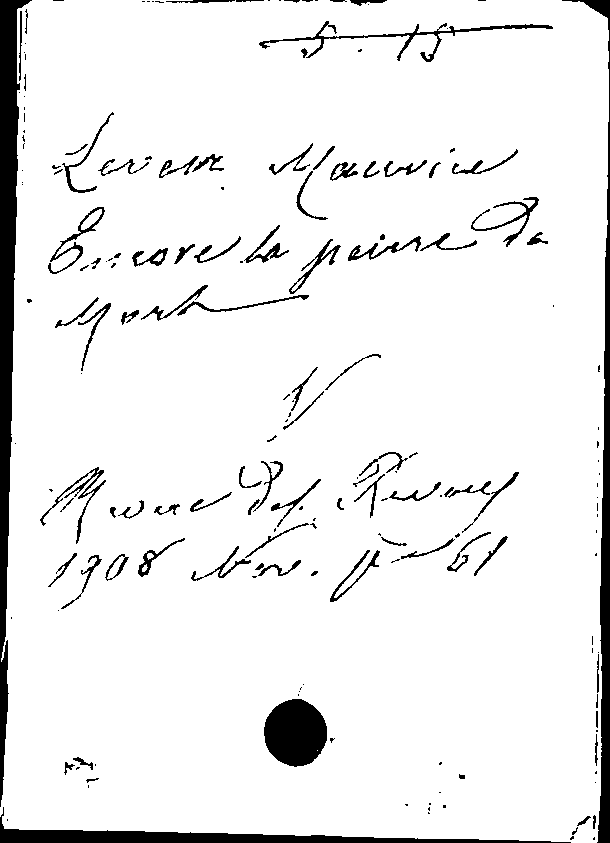 5.15
Level Maurice
Encore la peine de
Mort
V
Revue des Revues
1908 Nov. p 61